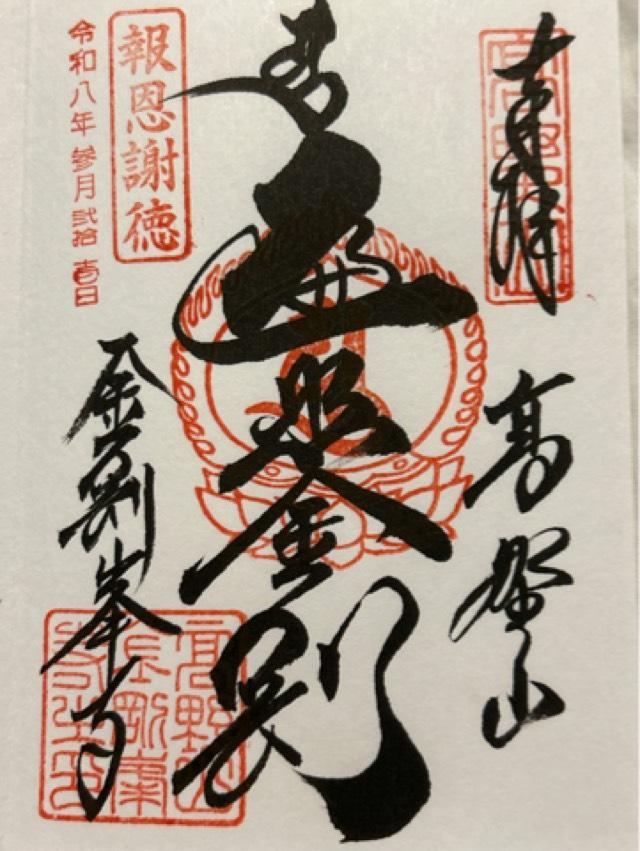 奉拝
高野山
遍照金剛
報恩謝徳
令和八年 参月 弐拾 壱日
金剛峯寺